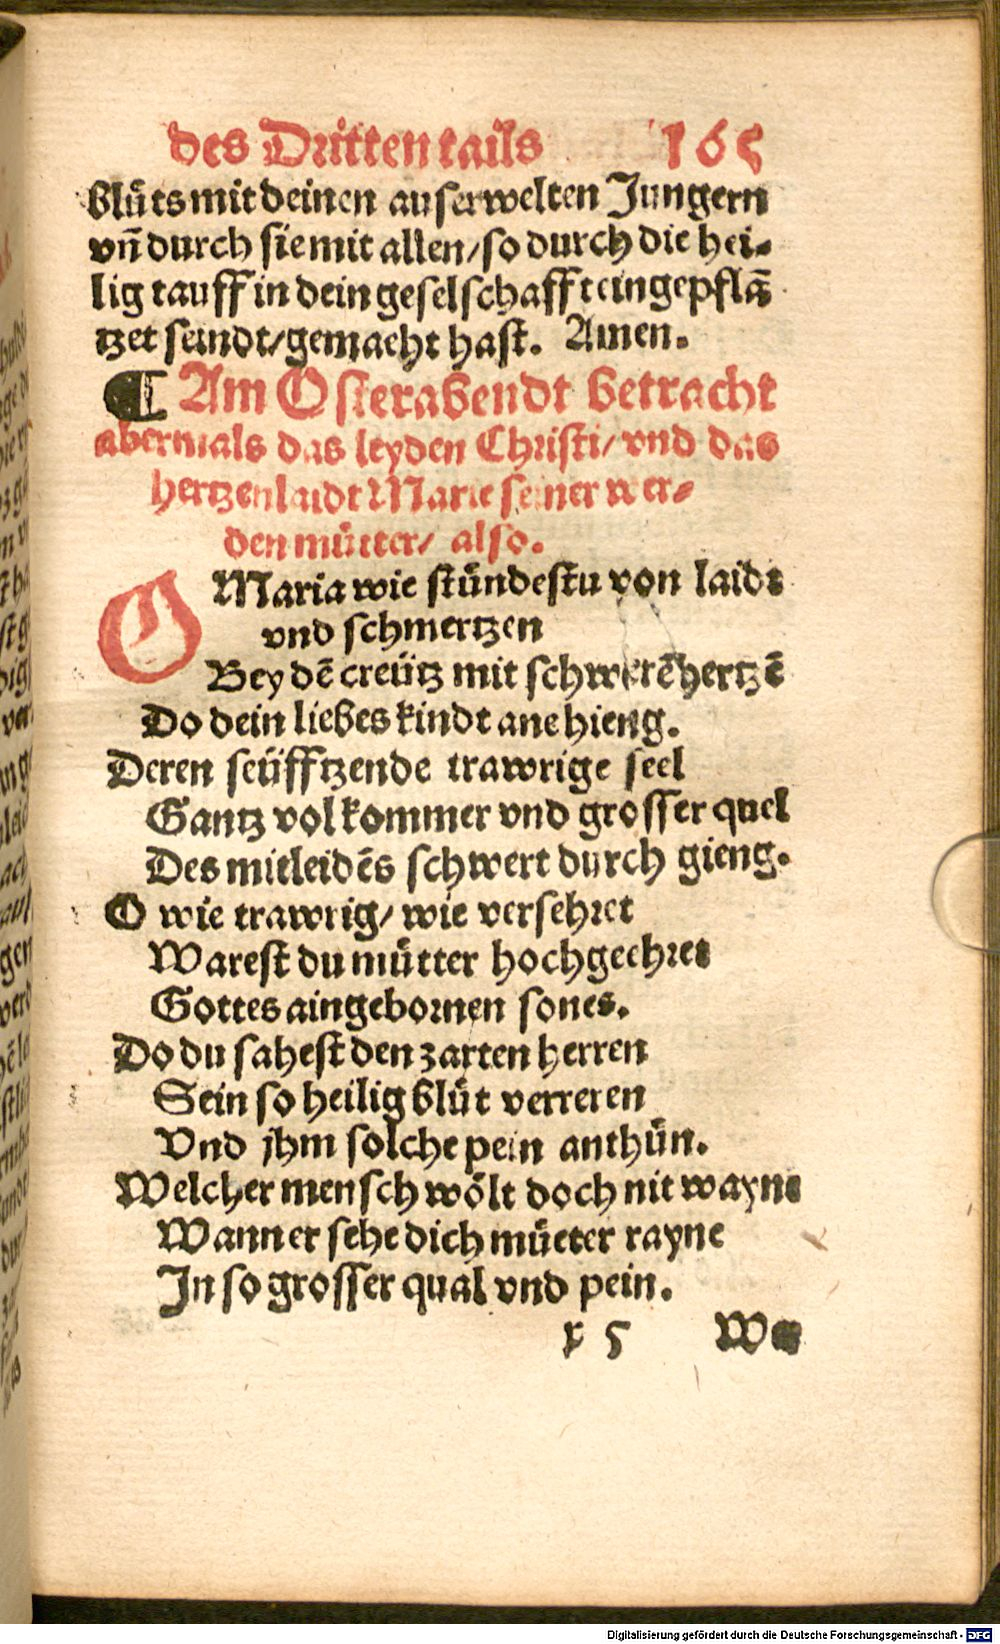 des Dritten tails 165
blůts mit deinen auserwelten Jungern
vñ durch sie mit allen/ so durch die hei-
lig tauff in dein geselschafft eingepflã
tzet seindt/ gemacht hast. Amen.
¶ Am Osterabendt betracht
abermals das leyden Christi/ vnd das
hertzenlaidt Marie seiner wer-
den můtter/ also.
O Maria wie stůndestu von laidt
vnd schmertzen
Bey dē creütz mit schwerē hertzē
Do dein liebes kindt ane hieng.
Deren seüfftzende trawrige seel
Gantz vol kommer vnd grosser quel
Des mitleidēs schwert durch gieng.
O wie trawrig/ wie versehret
Warest du můtter hochgeehret
Gottes aingebornen sones.
Do du sahest den zarten herren
Sein so heilig blůt verreren
Vnd jhm solche pein anthůn.
Welcher mensch wölt doch nit wayne
Wann er sehe dich můeter rayne
In so grosser qual vnd pein.
x 5
Digitalisierung gefördert durch die Deutsche Forschungsgemeinschaft - DFG